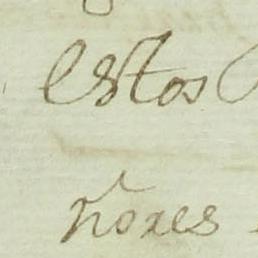 estos
nores